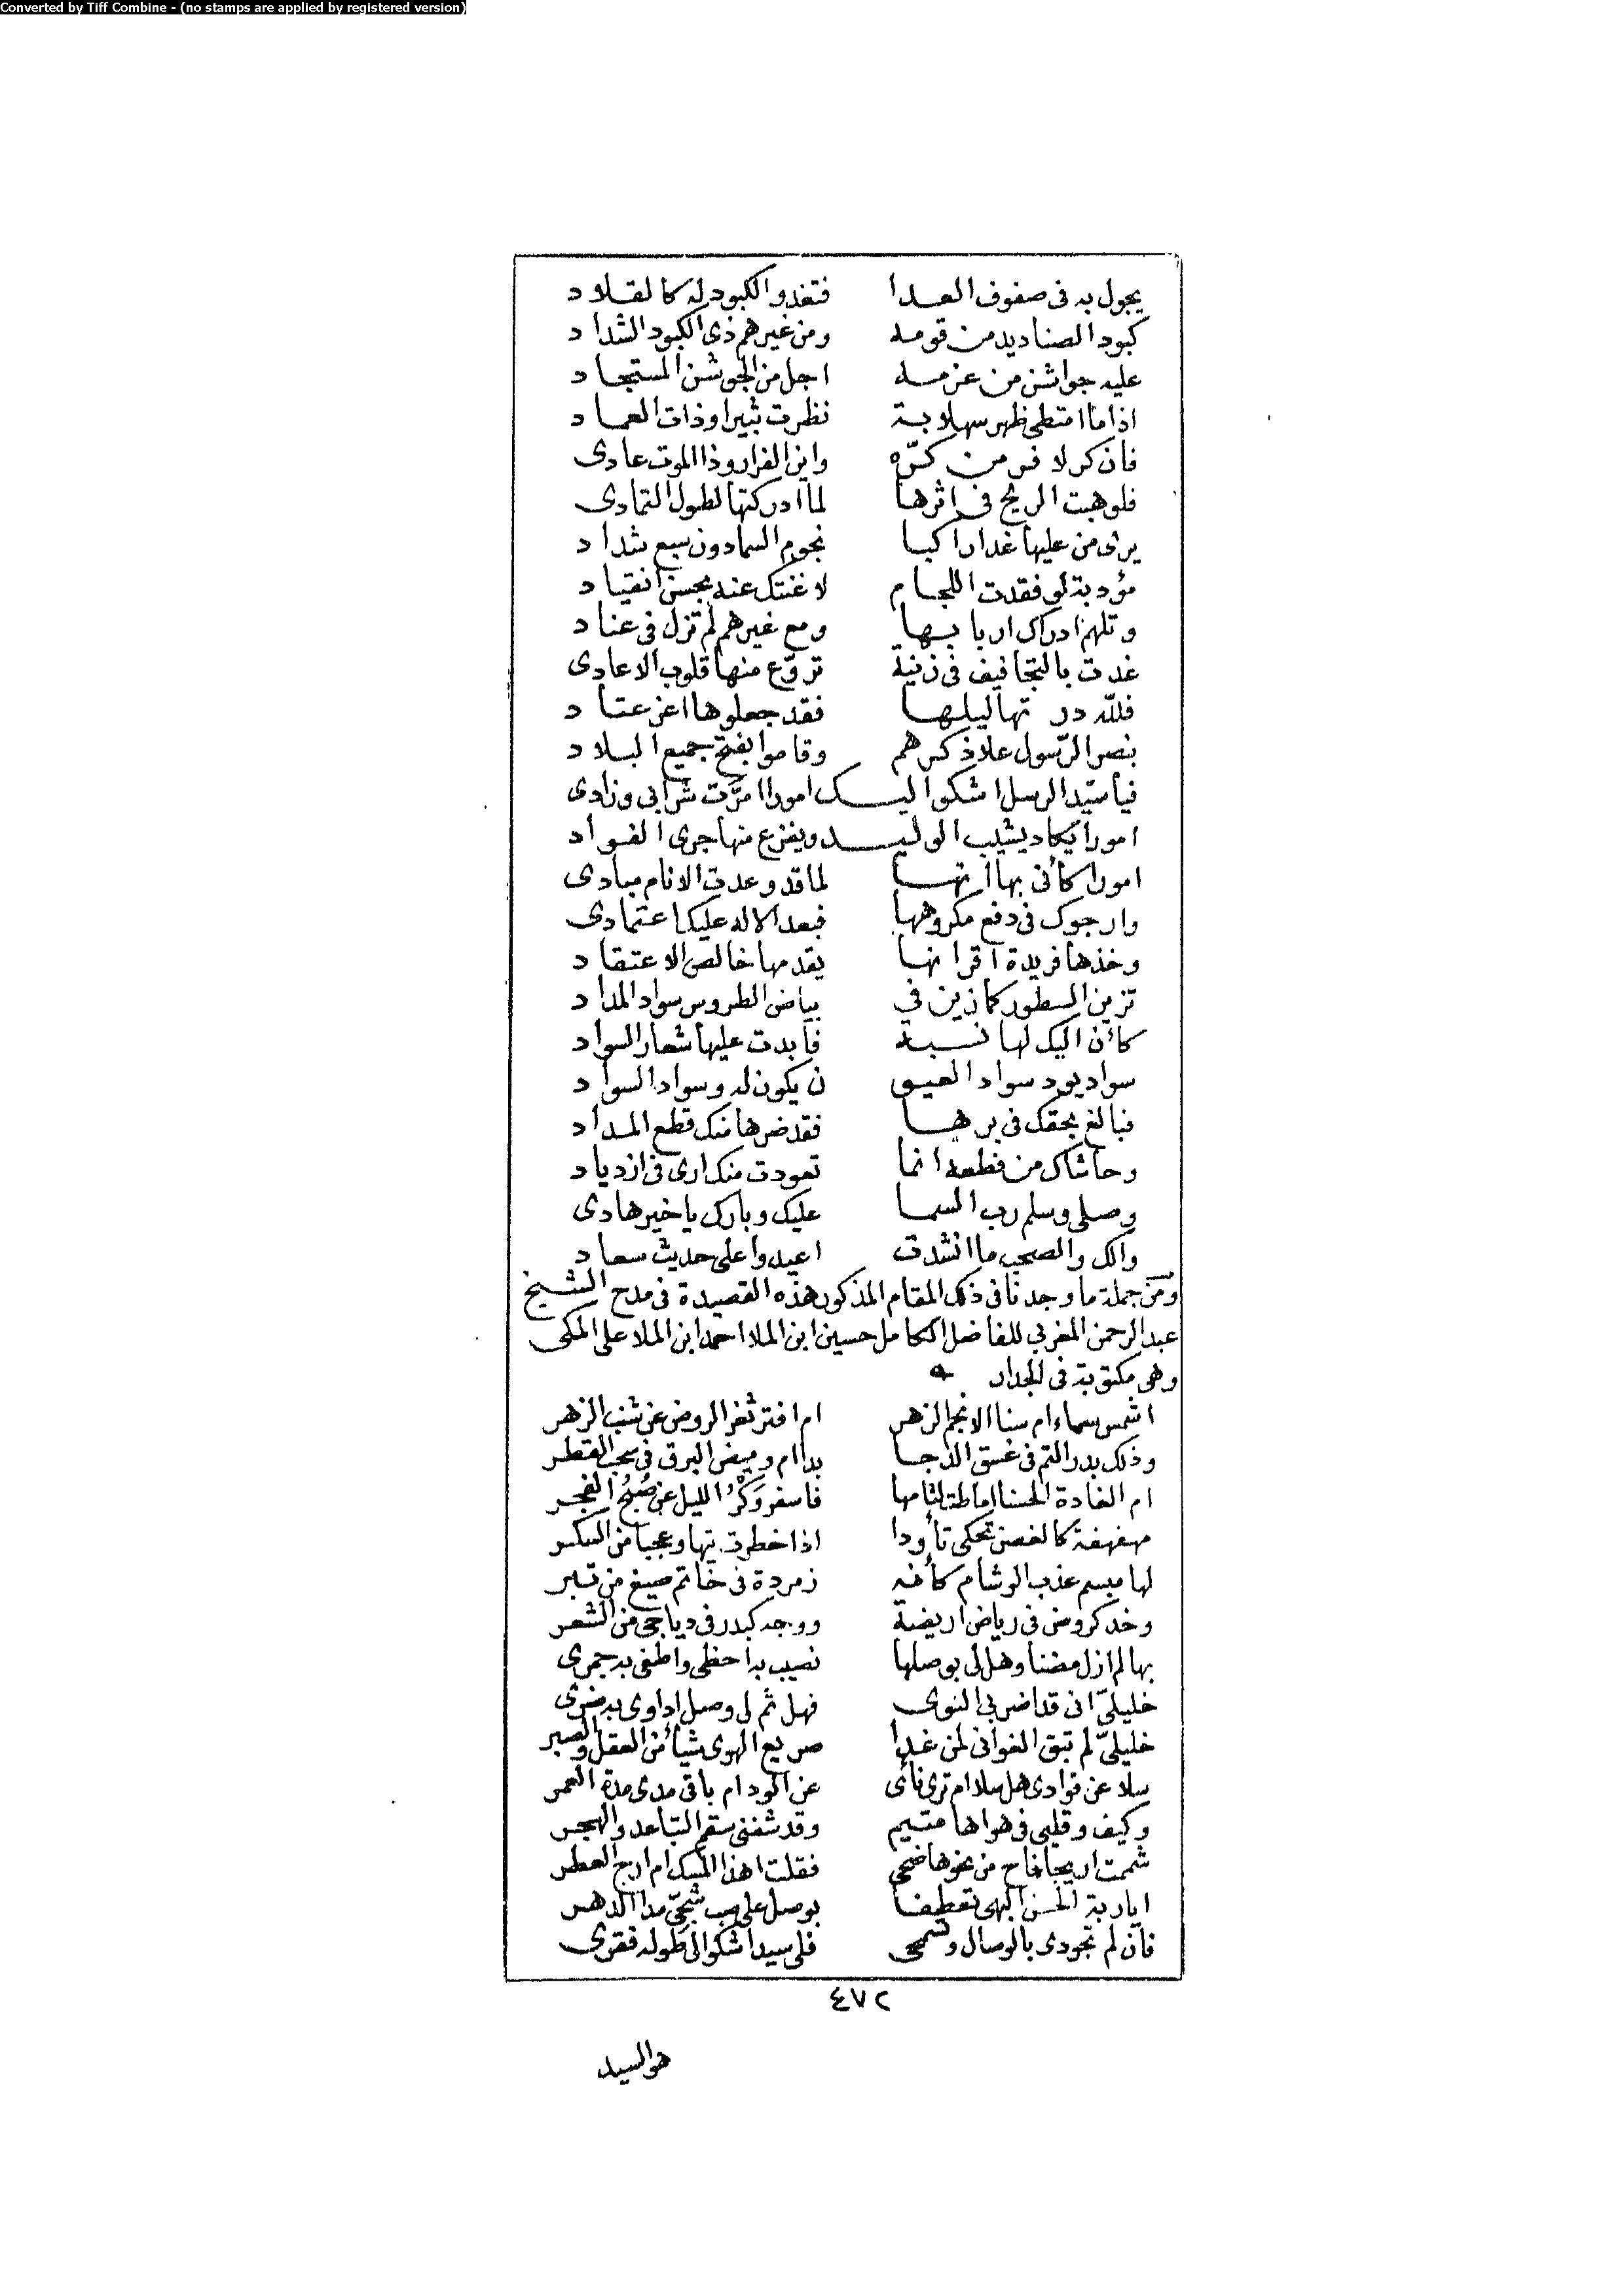 Converted by Tiff Combine - (no stamps are applied by registered version)
يجول به فى صفوف العدا فتغدو الكبود له كالقلاد
كبود الصناديد من قومه ومن غيرهم ذى الكبود الشداد
عليه جواشن من عزمه اجل من الجوشن المستجاد
اذا ما امتطى ظهر سهلابة نظرت ثبيرا وذات العماد
فان كر لا فر من كرّه واين الفرار وذا الموت عادى
فلو هبت الريح فى اثرها لما ادركتها لطول التمادى
يرى من عليها غدا راكبا نجوم السما دون سبع شداد
مؤدبة لو فقدت اللجام لاغنتك عنه بحسن انقياد
وتلهم ادراك اربابها ومع غيرهم لم تزل فى عناد
غدت بالتجافيف فى زنية تروّع منها قلوب الاعادى
فلله در تهاليلها فقد جعلوها اعز عتاد
بنصر الرّسول علا ذكرهم وقاموا بفتح جميع البلاد
فيا سيّد الرسل اشكوا اليك امورا امرّت شرابى وزادى
امورا يكاد يشيب الوليد ويفزع منها جرى الفواد
امورا كأنى بها انها لما قد وعدت الانام مبادى
وارجوك فى دفع مكروهها فبعد الاله عليك اعتمادى
وخذها فريدة اقرانها يقدمها خالص الاعتقاد
تزين السطور كما زين فى بياض الطروس سواد المداد
كأن اليك لها نسبة فابدت عليها شعار السواد
سواد يود سواد العيون يكون له وسواد السواد
فبالغ بحقك فى برها فقد ضرها منك قطع المداد
وحاشاك من قطعه انما تعودت منك ارى فى ازدياد
وصلى وسلم رب السما عليك وبارك يا خير هادى
والك والصحب ما انشدت اعيدوا على حديث سعاد
ومن جملة ما وجدنا فى ذلك المقام المذكور هذه القصيدة فى مدح الشيخ
عبد الرحمن المغربي للفاضل الكامل حسين ابن الملا احمد ابن الملا على المكى
وهى مكتوبة فى الجدار
اشمس سماء ام سنا الانجم الزهر ام افتر ثغر الروض عن شنب الزهر
وذلك بدر التم فى غسق الدجا بدا ام وميض البرق فى سحب القطر
ام الغادة الحسنا اماطة لثامها فاسفر وكر الليل عن صبح الفجر
مهفهفة كالغصن تحكى تأودا اذا خطرت تيها وعجبا من السكر
لها مبسم عذب الوشام كأنه زمردة فى خاتم صيغ من تبر
وخد كروض فى رياض اريضة ووجه كبدر فى دياجى من الشعر
بها لم ازل مضنا وهل لى بوصلها نصيب به احظى واطفى به جمرى
خليليّ انى قد اضر بي النوى فهل ثم لى وصل اداوى به ضرى
خليليّ لم تبق الغوانى لمن غدا صريع الهوى شيأ من العقل والصبر
سلا عن فوادى هل سلا ام ترى نأى عن الود ام باقى مدى مدة العمر
وكيف وقلبى فى هواها متيم وقد شفنى سقم التباعد والهجر
شممت اريجا فاح من نحوها ضحى فقلت اهذا المسك ام ارج العطر
ايا ربة الحسن البهى تعطيفا بوصل على صب شجيّ مدا الدهر
فان لم تجودى بالوصال وتسمحى فلى سيد اشكوا الى طوله فقرى
٤٧٢
هو السيد